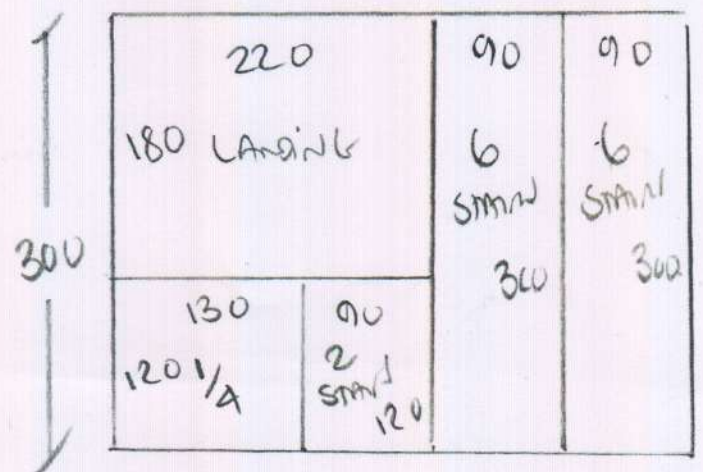 220
180 LANDING
90
6
STAIRS
300
90
6
STAIRS
300
300
130
120 1/A
90
2
STAIRS
120